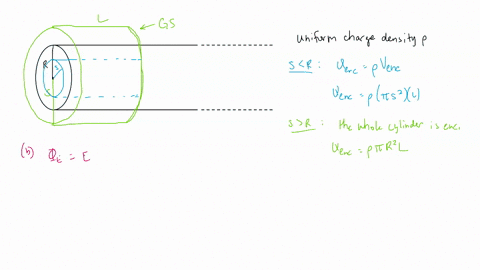 L
GS
R
s
S
uniform charge density ρ
S < R : qenc = ρVenc
qenc = ρ(πs²)(L)
S > R : the whole cylinder is enc.
qenc = ρπR²L
(b) ΦE = E